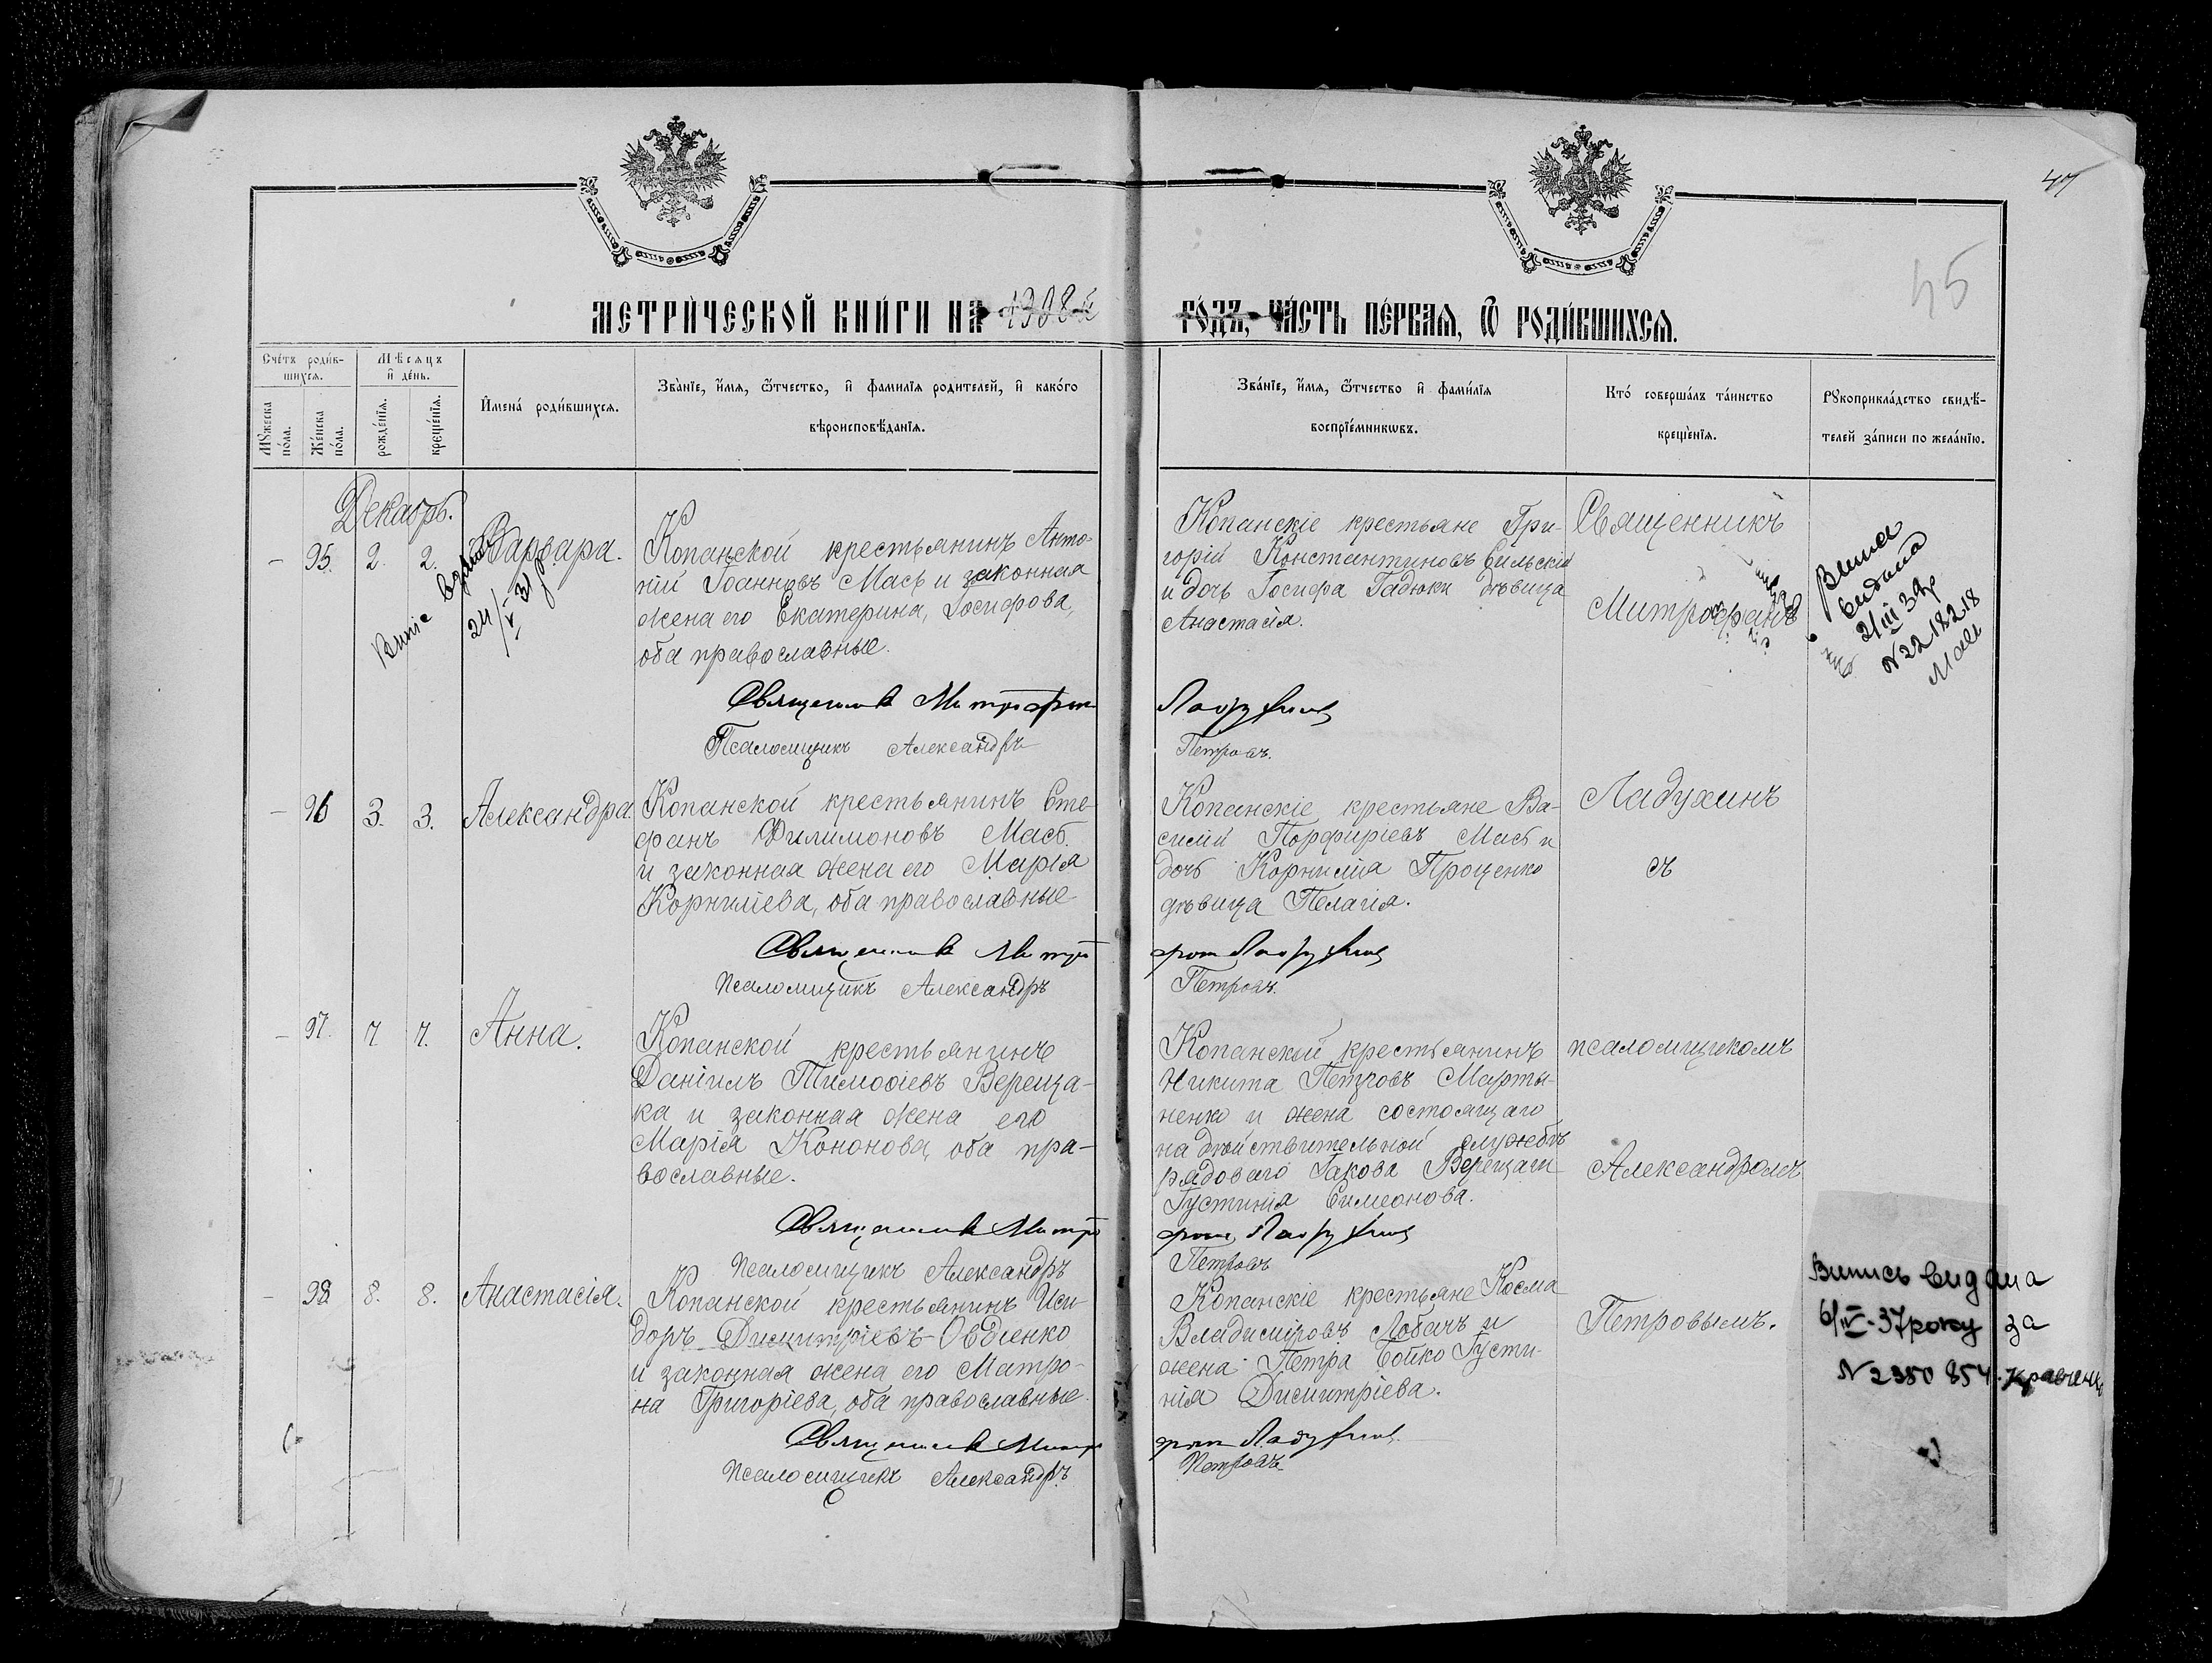 47
45
МЕТРИЧЕСКОЙ КНИГИ НА 1908 й
ГОДЪ, ЧАСТЬ ПЕРВАЯ, Ѿ РОДИВШИХСЯ.
Счетъ родив-
шихся.
Мѣсяцъ
и день.
Мужеска
пола.
Женска
пола.
рожденія.
крещенія.
Имена родившихся.
Званіе, имя, ѿтчество, и фамилія родителей, и какого
вѣроисповѣданія.
Званіе, имя, ѿтчество и фамилія
воспріемниковъ.
Кто совершалъ таинство
крещенія.
Рукоприкладство свидѣ-
телей записи по желанію.
Декабрь.
– 95. 2. 2. Варвара.
24/V 31 р
Копанской крестьянинъ Анто-
ній Іоанновъ Мась и законная
жена его Екатерина, Іосифова,
оба православные.
Священникъ Митрофанъ
Псаломщикъ Александръ
Копанскіе крестьяне Гри-
горій Константиновъ Сильскій
и дочь Іосифа Гадюки дѣвица
Анастасія.
Ладухинъ
Петровъ.
Священникъ
Митрофанъ
видана
21/III 39р
N 22 18218
– 96 3. 3. Александра
Копанской крестьянинъ Сте-
фанъ Филимоновъ Мась.
и законная жена его Марія
Корниліева, оба православные
Священникъ Митро
Псаломщикъ Александръ
Копанскіе крестьяне Ва-
силій Порфиріевъ Мась и
дочь Корнилія Проценко
дѣвица Пелагія.
фанъ Ладухинъ
Петровъ.
Ладухинъ
съ
– 97. 7 7. Анна.
Копанской крестьянинъ
Даніилъ Тимофіевъ Вереща-
ка и законная жена его
Марія Кононова, оба пра-
вославные.
Священникъ Митро
Псаломщикъ Александръ
Копанскій крестьянинъ
Никита Петровъ Марты-
ненко и жена состоящаго
на дѣйствительной службѣ
рядового Іакова Верещаги
Іустинія Симеонова.
фанъ Ладухинъ
Петровъ
псаломщикомъ
Александромъ
– 98. 8. 8. Анастасія.
Копанской крестьянинъ Иси-
доръ Димитріевъ Овдіенко
и законная жена его Матро-
на Григоріева, оба православные.
Священникъ Митро
Псаломщикъ Александръ
Копанскіе крестьяне Косма
Владиміровъ Лобачъ и
жена Петра Бойко Іусти-
нія Димитріева.
фанъ Ладухинъ
Петровъ
Петровымъ.
Випись видана
6/IV-37 року за
N 2350 854. Кравченко